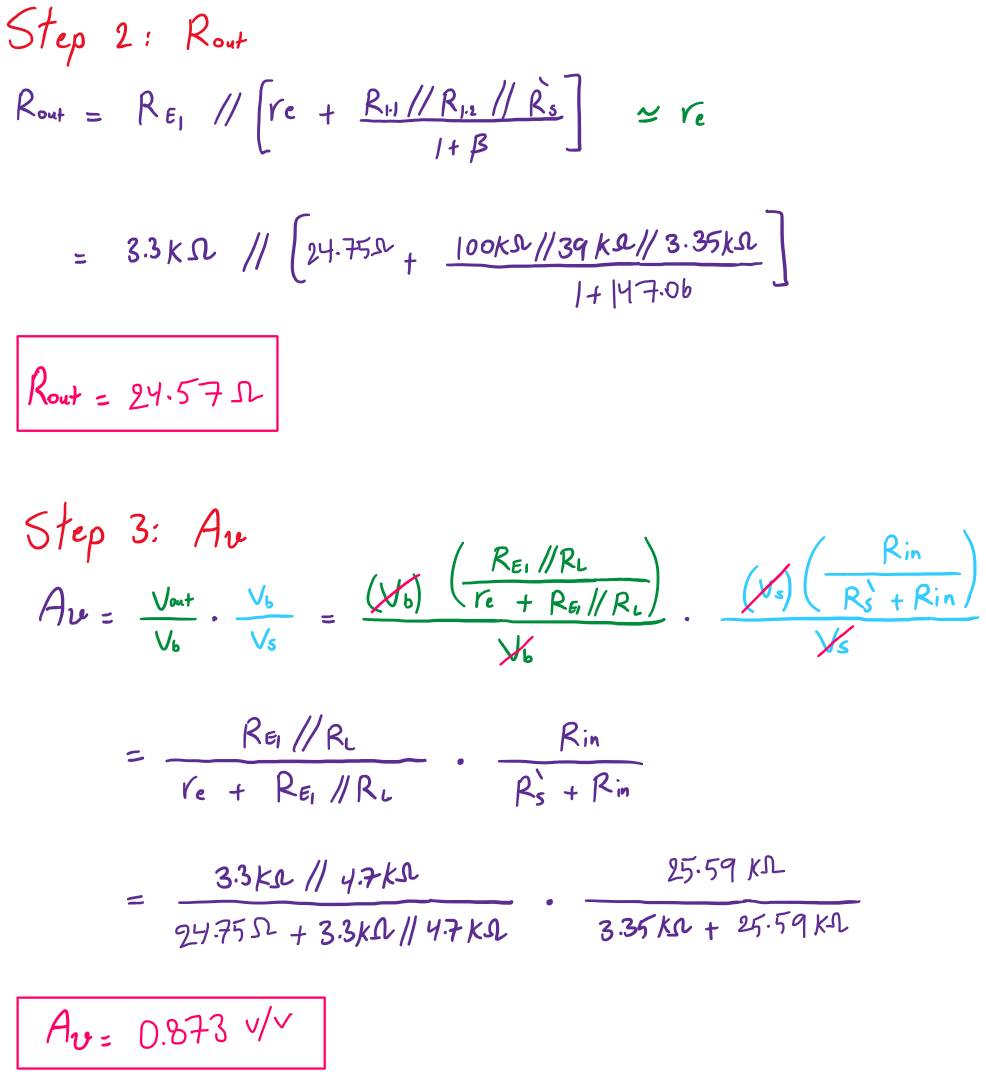 Step 2: Rout
Rout = RE1 // [re + R1.1 // R1.2 // R`s / 1 + β] ≃ re
= 3.3kΩ // [24.75Ω + 100kΩ//39kΩ//3.35kΩ / 1+147.06]
Rout = 24.57Ω
Step 3: Av
Av = Vout/Vb · Vb/Vs = (Vb) (RE1 // RL / re + RE1 // RL) / Vb · (Vs) (Rin / R`s + Rin) / Vs
= RE1 // RL / re + RE1 // RL · Rin / R`s + Rin
= 3.3kΩ // 4.7kΩ / 24.75Ω + 3.3kΩ // 4.7kΩ · 25.59 kΩ / 3.35kΩ + 25.59kΩ
Av = 0.873 v/v